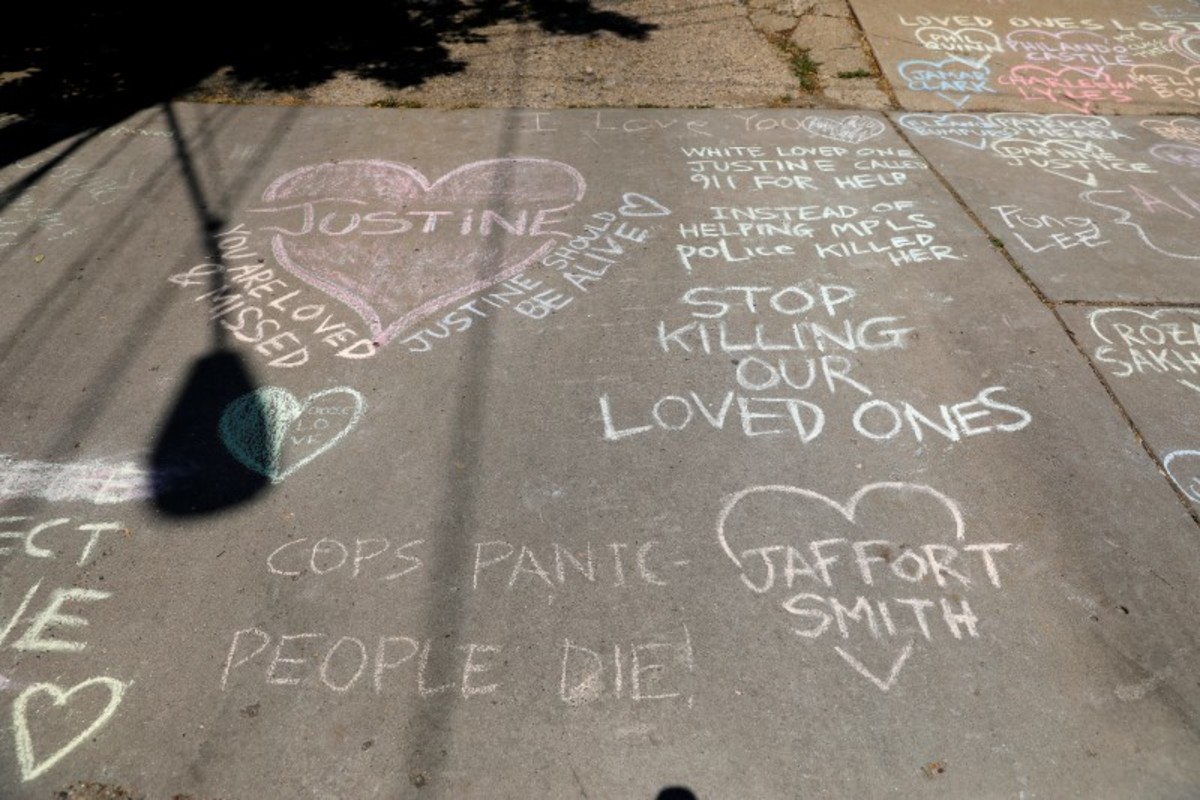 LOVED ONES LOST
PHIL QUINN
PHILANDO CASTILE
JAMAR CLARK
I Love You
JUSTINE
YOU ARE LOVED
& MISSED
JUSTINE SHOULD
BE ALIVE
WHITE LOVED ONE
JUSTINE CALLED
911 FOR HELP
INSTEAD OF
HELPING MPLS
POLICE KILLED
HER.
STOP
KILLING
OUR
LOVED ONES
FONG
LEE
CHOOSE
LO
VE
COPS PANIC-
PEOPLE DIE!
JAFFORT
SMITH
ECT
VE